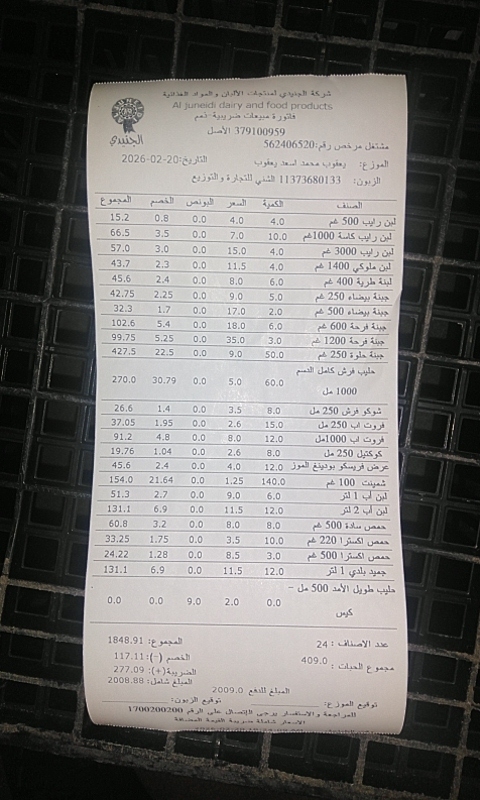 شركة الجنيدي لمنتجات الألبان والمواد الغذائية
Al juneidi dairy and food products
فاتورة مبيعات ضريبية-ذمم
379100959 الأصل
مشتغل مرخص رقم:562406520
الجنيدي
الموزع: يعقوب محمد اسعد يعقوب التاريخ:20-02-2026
الزبون: 11373680133 الشني للتجارة والتوزيع
الصنف الكمية السعر البونص الخصم المجموع
لبن رايب 500 غم 4.0 4.0 0.0 0.8 15.2
لبن رايب كاسة 1000غم 10.0 7.0 0.0 3.5 66.5
لبن رايب 3000 غم 4.0 15.0 0.0 3.0 57.0
لبن ملوكي 1400 غم 4.0 11.5 0.0 2.3 43.7
لبنة طرية 400 غم 6.0 8.0 0.0 2.4 45.6
جبنة بيضاء 250 غم 5.0 9.0 0.0 2.25 42.75
جبنة بيضاء 500 غم 2.0 17.0 0.0 1.7 32.3
جبنة فرحة 600 غم 6.0 18.0 0.0 5.4 102.6
جبنة فرحة 1200 غم 3.0 35.0 0.0 5.25 99.75
جبنة حلوة 250 غم 50.0 9.0 0.0 22.5 427.5
حليب فرش كامل الدسم
1000 مل 60.0 5.0 0.0 30.79 270.0
شوكو فرش 250 مل 8.0 3.5 0.0 1.4 26.6
فروت اب 250 مل 15.0 2.6 0.0 1.95 37.05
فروت اب 1000مل 12.0 8.0 0.0 4.8 91.2
كوكتيل 250 مل 8.0 2.6 0.0 1.04 19.76
عرض فريسكو بودينغ الموز 12.0 4.0 0.0 2.4 45.6
شمينت 100 غم 140.0 1.25 0.0 21.64 154.0
لبن أب 1 لتر 6.0 9.0 0.0 2.7 51.3
لبن أب 2 لتر 12.0 11.5 0.0 6.9 131.1
حمص سادة 500 غم 8.0 8.0 0.0 3.2 60.8
حمص اكسترا 220 غم 10.0 3.5 0.0 1.75 33.25
حمص اكسترا 500 غم 3.0 8.5 0.0 1.28 24.22
جميد بلدي 1 لتر 12.0 11.5 0.0 6.9 131.1
حليب طويل الأمد 500 مل -
كيس 0.0 2.0 9.0 0.0 0.0
عدد الاصناف : 24 المجموع: 1848.91
مجموع الحبات : 409.0 الخصم (-): 117.11
الضريبة(+): 277.09
المبلغ شامل: 2008.88
المبلغ للدفع 2009.0
توقيع الموزع: توقيع الزبون:
للمراجعة والاستفسار يرجى الإتصال على الرقم 1700200200
الاسعار شاملة ضريبة القيمة المضافة